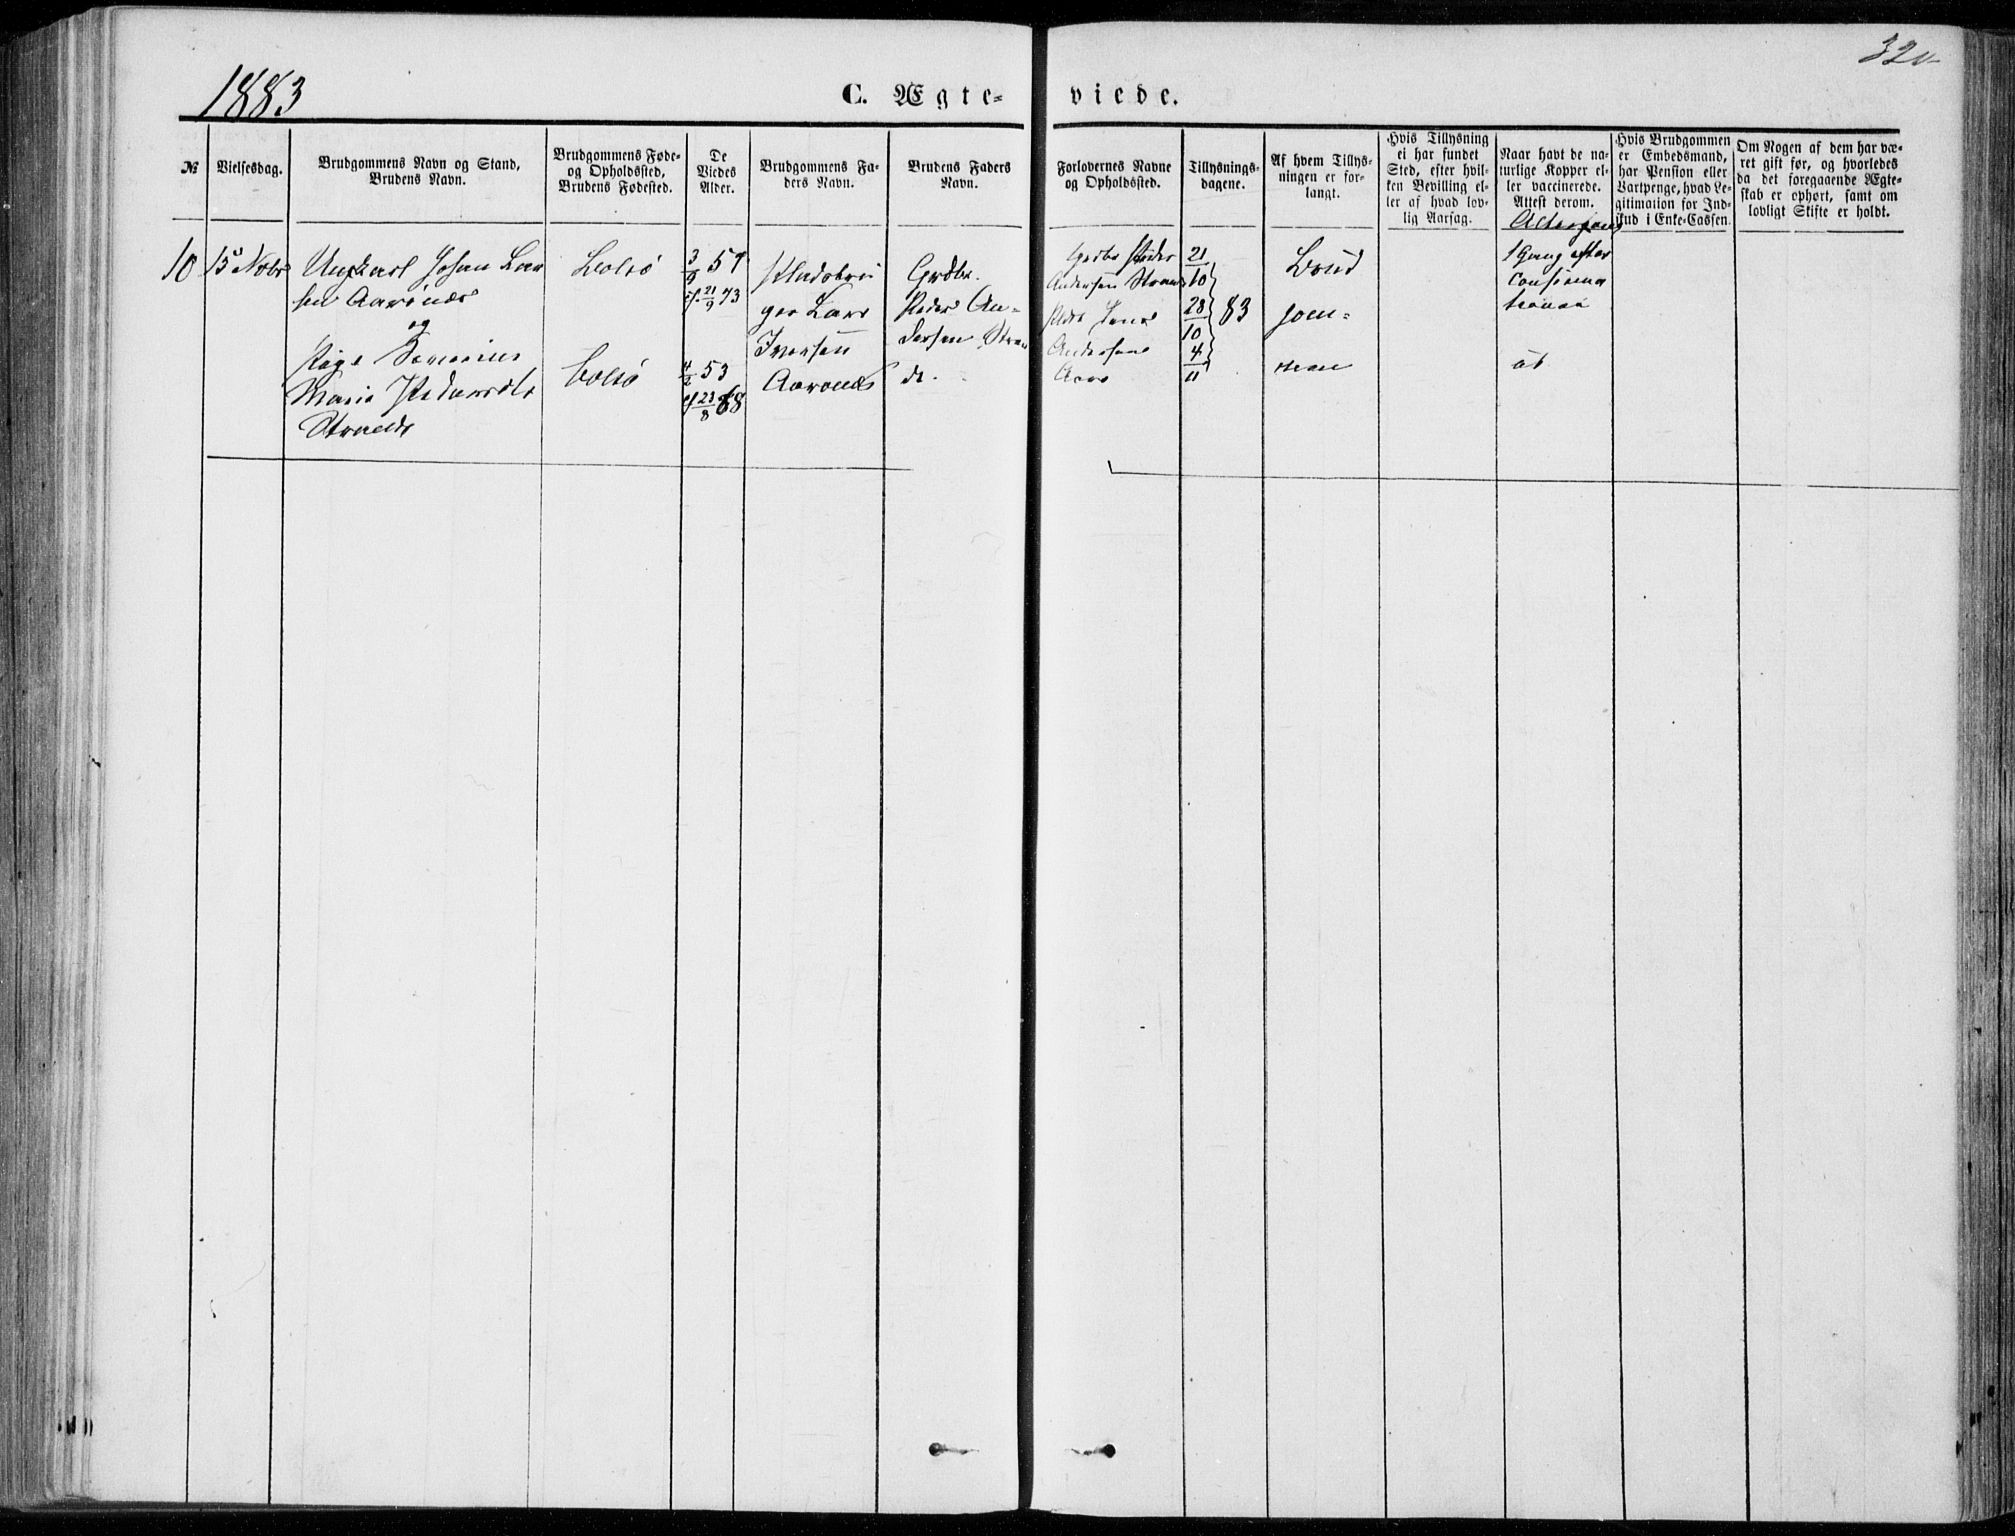 1883
C. Ægte-
viede.
320
№
Vielsesdag.
Brudgommens Navn og Stand,
Brudens Navn.
Brudgommens Føde-
og Opholdssted,
Brudens Fødested.
De
Viedes
Alder.
Brudgommens Fa-
ders Navn.
Brudens Faders
Navn.
Forlovernes Navne
og Opholdssted.
Tillysnings-
dagene.
Af hvem Tillys-
ningen er for-
langt.
Hvis Tillysning
ei har fundet
Sted, efter hvil-
ken Bevilling el-
ler af hvad lov-
lig Aarsag.
Naar havt de na-
turlige Kopper el-
ler vaccinerede.
Attest derom.
Hvis Brudgommen
er Embedsmand,
har Pension eller
Vartpenge, hvad Le-
gitimation for Ind-
skud i Enke-Cassen.
Om Nogen af dem har væ-
ret gift før, og hvorledes
da det foregaaende Ægte-
skab er ophørt, samt om
lovligt Skifte er holdt.
10
15 Novbr
Ungkarl Johan Lar
sen Aarönes
og
Pige
Marie Pedersdtr
Strande
Bolsö
Bolsö
3/9 57
21/9 73
4/2 53
23/8 68
Pladsbru
ger Lars
Iversen
Aarönes
Grdbr.
Peder An-
dersen Stran
de.
Grdbr Peder
Andersen Strande
Peder Jens
Andersen
Aarö
21/10
28/10 83
4/11
Brud
gom-
men
Altergang
1 Gang efter
Confirma
tionen